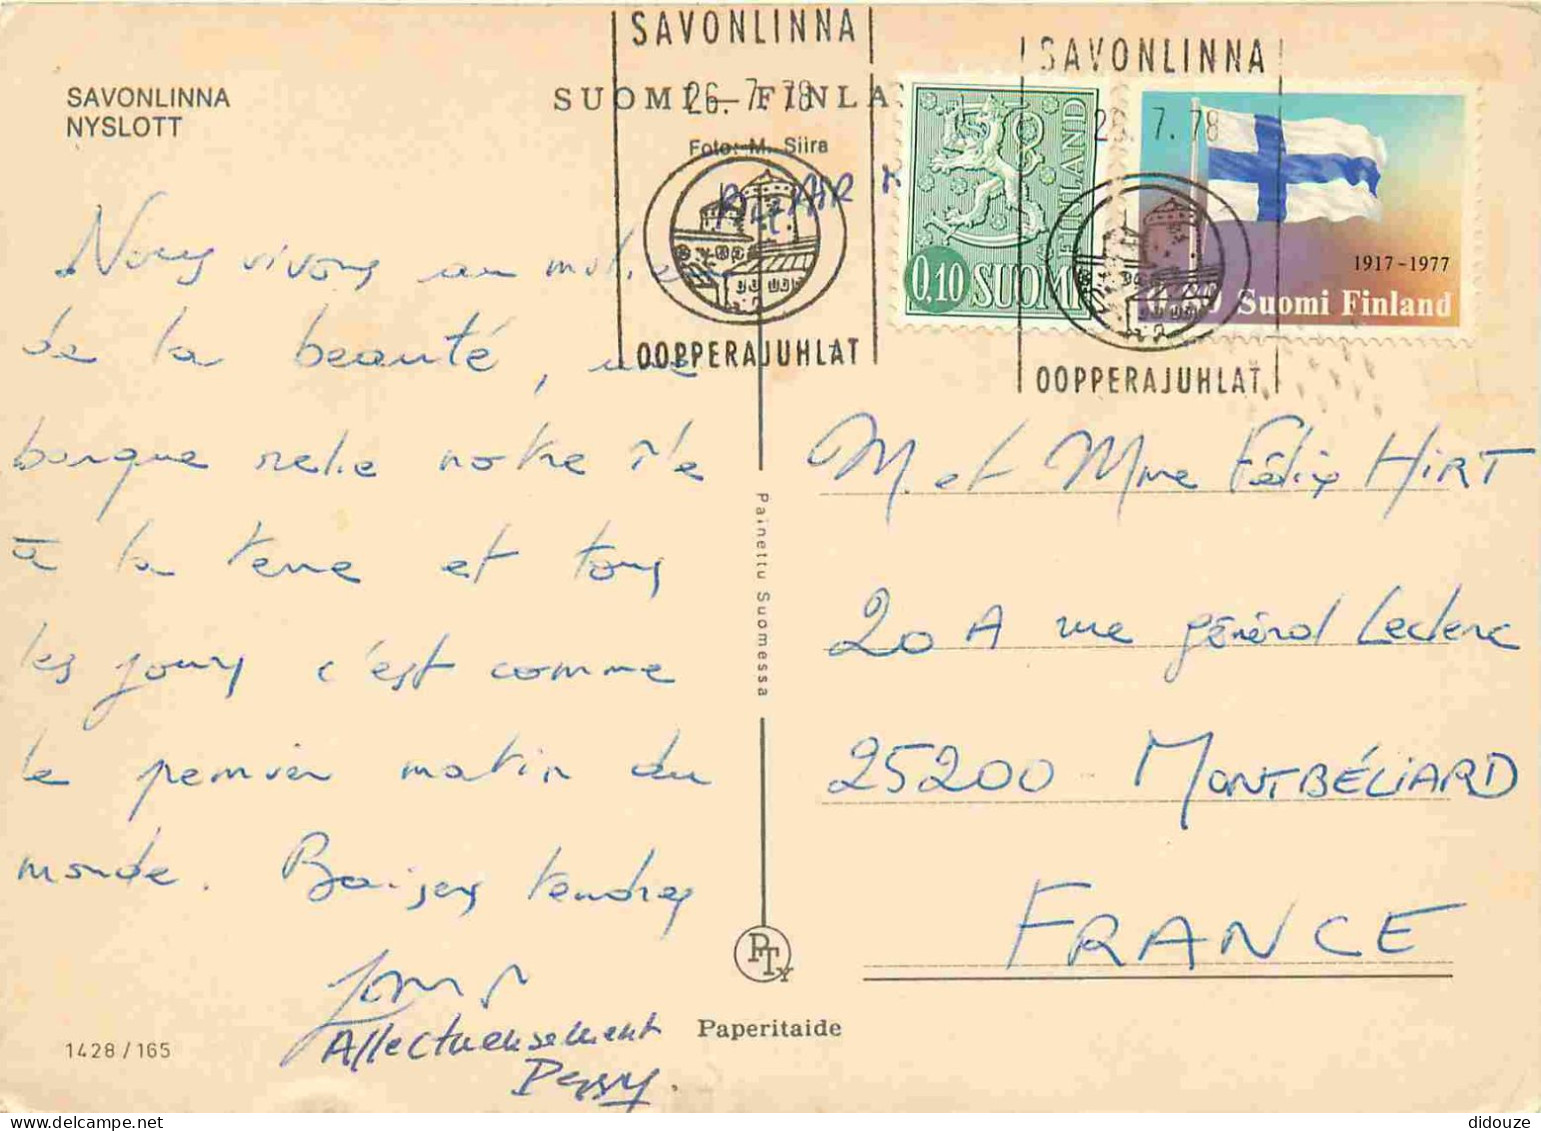 SAVONLINNA
NYSLOTT
SUOMI — FINLA
Foto: M. Siira
SAVONLINNA
26. 7. 78
OOPPERAJUHLAT
SAVONLINNA
26. 7. 78
OOPPERAJUHLAT
FINLAND
0,10 SUOMI
1917-1977
Suomi Finland
PAR AIR
Nous vivons au milieu
de la beauté, une
barque relie notre île
à la terre et tous
les jours c'est comme
le premier matin du
monde. Baisers tendres
Affectueusement
Peggy.
M. et Mme Félix HIRT
20 A rue général Leclerc
25200 MONTBÉLIARD
FRANCE
Painettu Suomessa
PTY
Paperitaide
1428/165
didouze